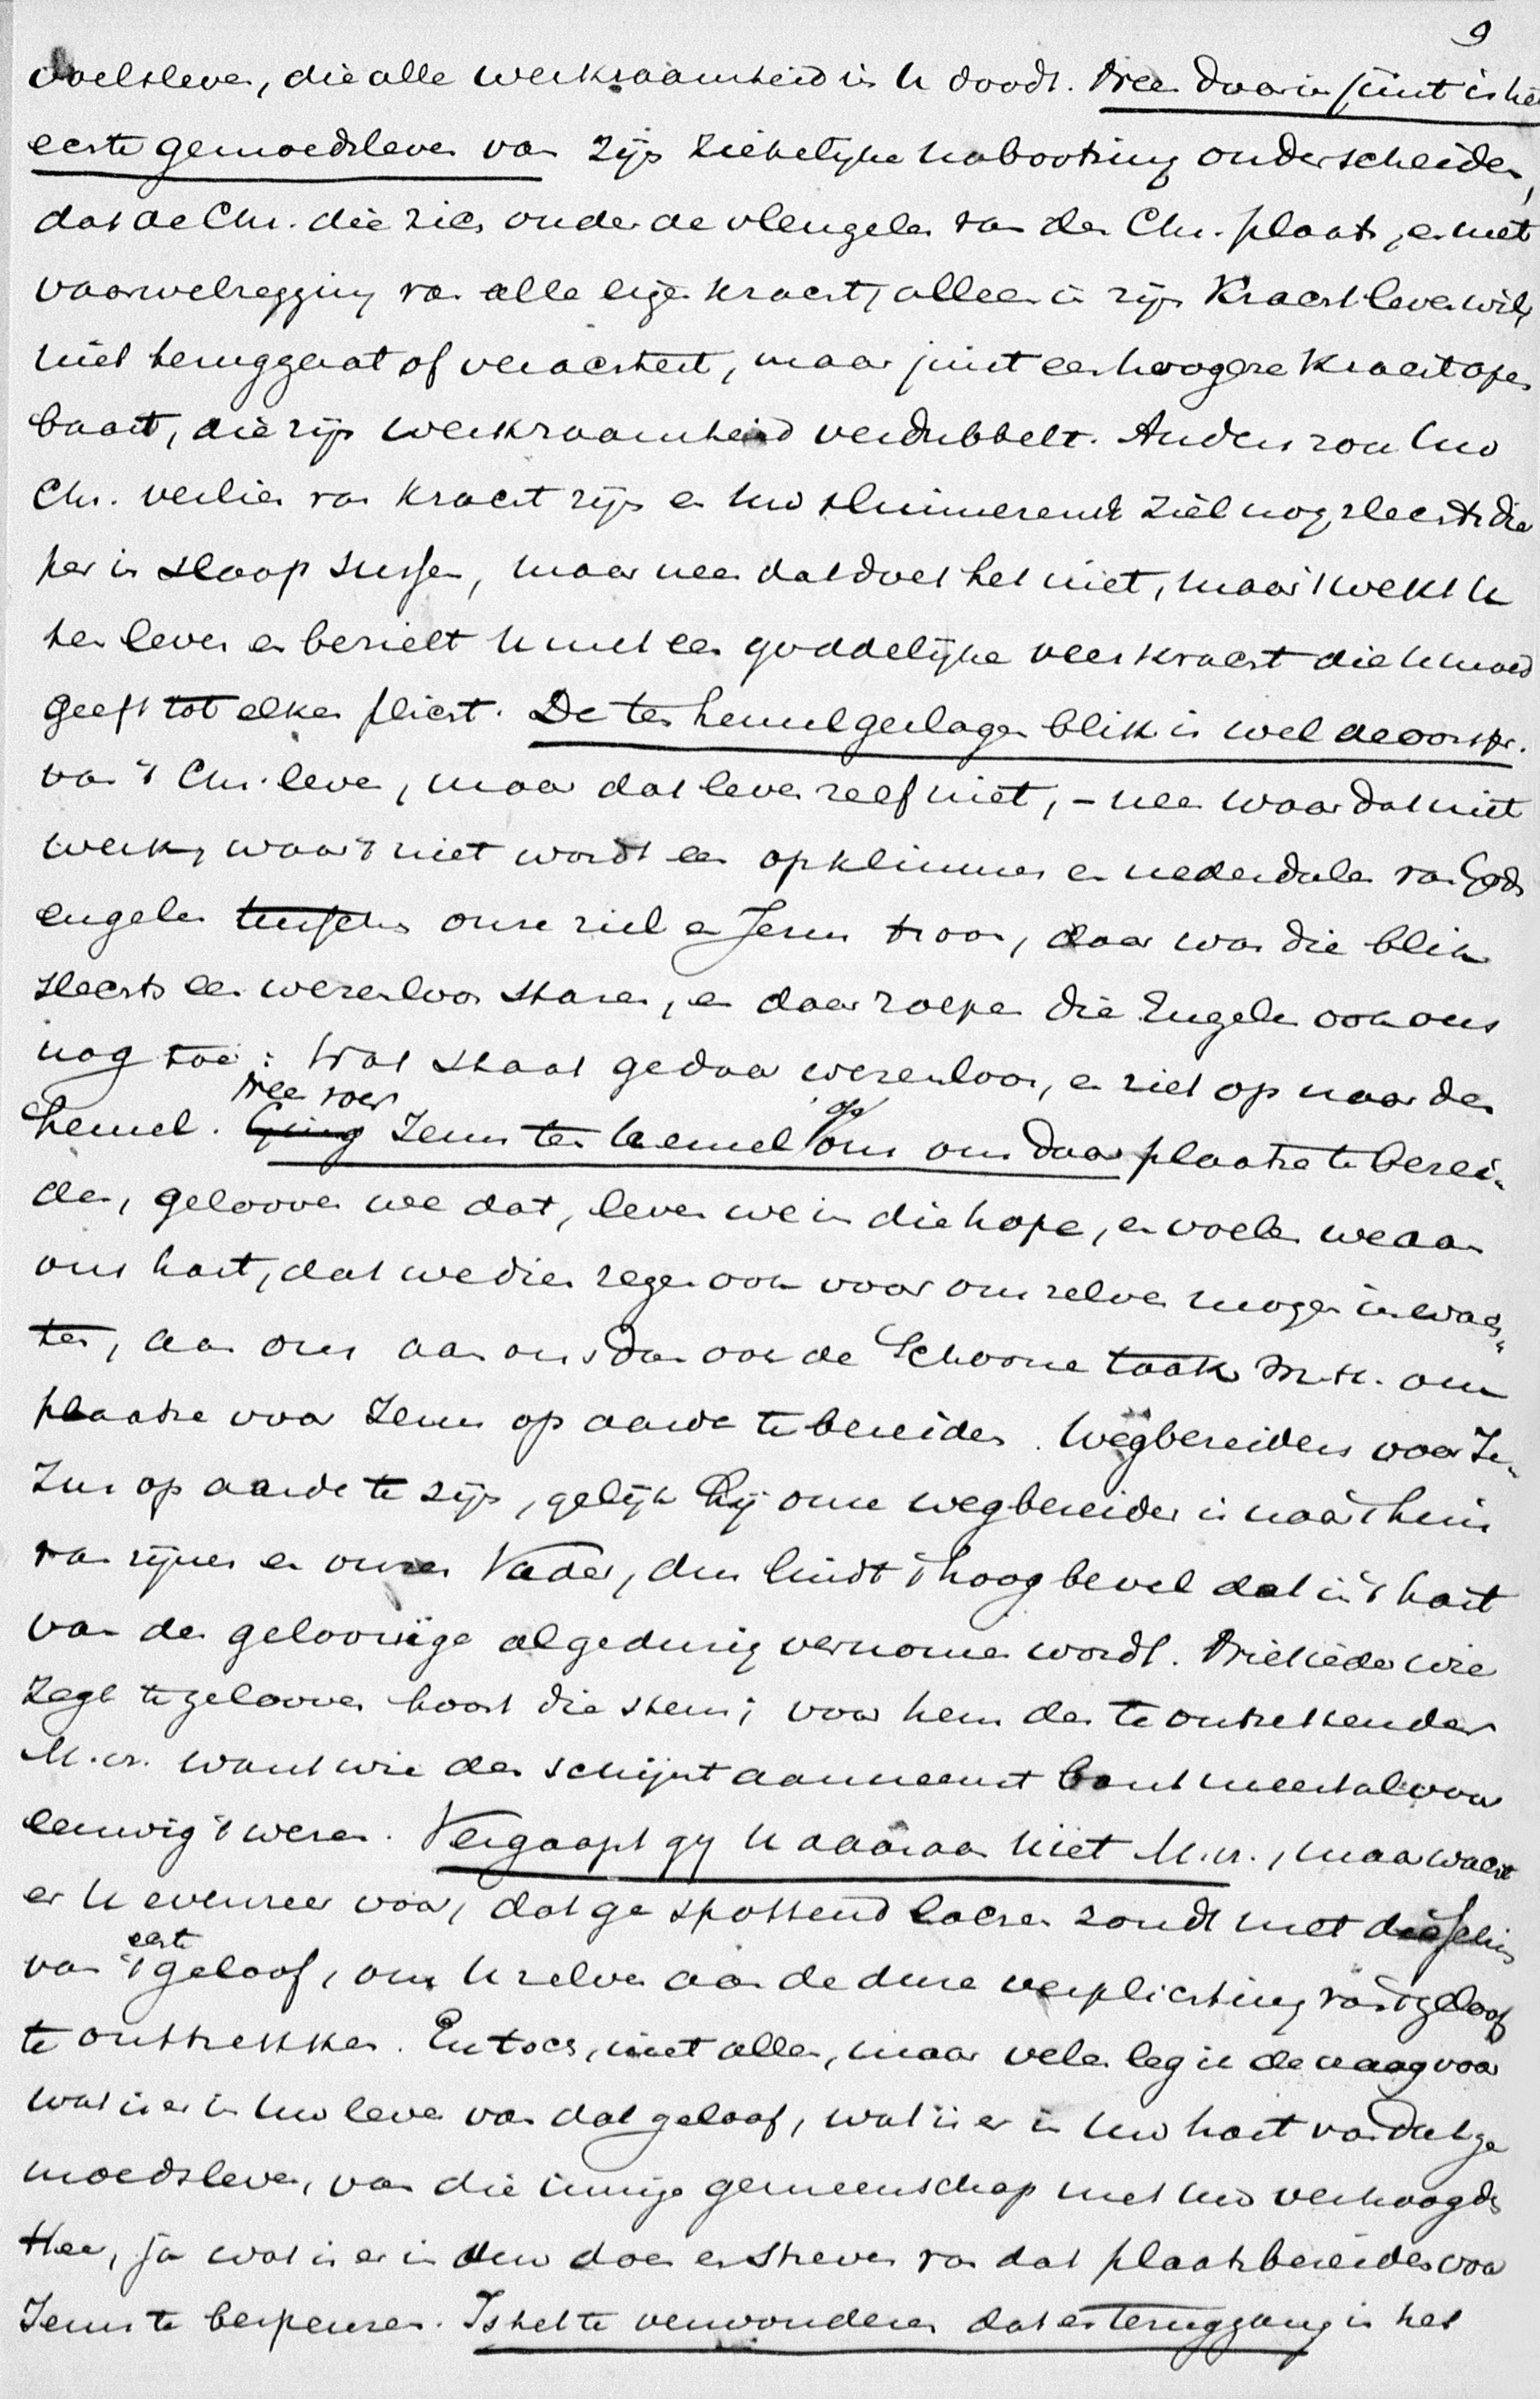 9
voelsleven, die alle werkzaamheid in U doodt. Neen daarin juist is het
echte gemoedsleven van zijn ziekelijke nabootsing onderscheiden,
dat de Chr. die zich onder de vleugelen van den Chr. plaatst, en met
vaarwelzegging van alle eigen kracht, alleen in zijn Kracht leven wil,
niet teruggaat of verachtert, maar juist een hoogere Kracht open
baart, die zijn werkzaamheid verdubbelt. Anders zou Uw
Chr. verlies van kracht zijn en Uw sluimerende ziel nog slechts die
per in slaap sussen, maar neen dat doet het niet, maar 't wekt U
ten leven en bezielt U met een goddelijke veerkracht die U moed
geeft tot elken plicht. De ten hemel geslagen blik is wel de oorspr.
van 't Chr. leven, maar dat leven zelf niet, – neen waar dat niet
werkt, waar 't niet wordt een opklimmen en nederdalen van Gods
engelen tusschen onze ziel en Jezus troon, daar was die blik
slechts een wezenloos staren, en daar roepen die Engelen ook ons
nog toe: Wat staat ge daar wezenloos, en ziet op naar den
Nee voer op
hemel. Ging Jezus ten hemel om ons daar plaatse te berei-
den, gelooven we dat, leven we in die hope, en voelen we aan
ons hart, dat we dien zegen ook voor ons zelven mogen inwach-
ten, aan ons aan ons dan ook de Schoone taak M.H. om
plaatse voor Jezus op aarde te bereiden. Wegbereiders voor Je-
zus op aarde te zijn, gelijk Hij onze wegbereider is naar 't huis
van zijnen en onzen Vader, dus luidt 't hoog bevel dat in 't hart
van den geloovige al gedurig vernomen wordt. Niet ieder wie
zegt te gelooven hoort die stem; voor hem des te ontzettender
M.H. want wie den schijn aanneemt bant meestal voor
eeuwig 't wezen. Vergaapt gij U daaraan niet M.H., maar wacht
er U evenzeer voor, dat ge spottend lachen zoudt met dien schijn
echte
van 't geloof, om U zelven aan de dure verplichting van 't geloof
te onttrekken. En toch, niet allen, maar velen leg ik de vraag voor
wat is er in Uw leven van dat geloof, wat is er in Uw hart van dat ge
moedsleven, van die innige gemeenschap met Uw verhoogden
Heer, ja wat is er in Uw doen en streven van dat plaatsbereiden voor
Jezus te bespeuren. Is het te verwonderen dat er teruggang is het